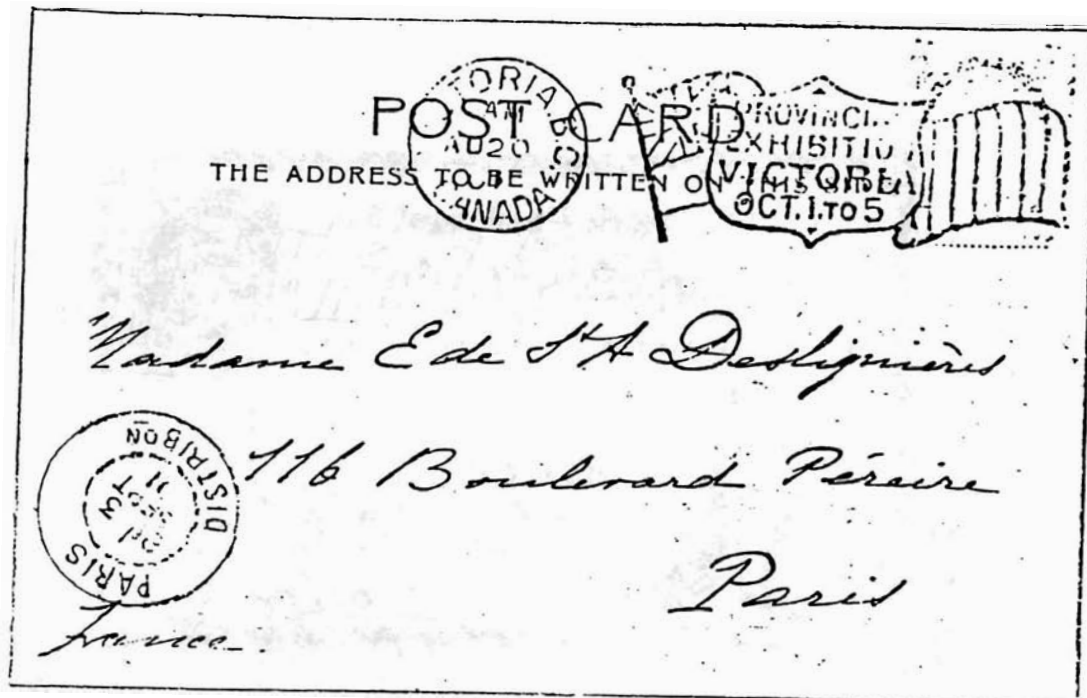 POST CARD
THE ADDRESS TO BE WRITTEN ON THIS SIDE
TORIA B.C.
AM
AU 20
01
CANADA
PROVINCI
EXHIBITIO
VICTORI
OCT. 1. TO 5
Madame E de St A Deslignières
116 Boulevard Péreire
Paris
France.
PARIS
DISTRIBON
3
SEPT
01